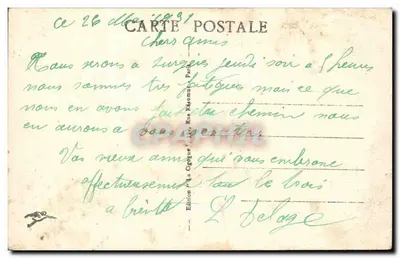 ce 26 Mai 1931
CARTE POSTALE
Chers amis
Nous serons a Surgères jeudi soir a 5 heures
nous sommes tres fatigués mais ce que
nous en avons fait du chemin nous
en aurons a vous
Vos vieux amis qui vous embrasse
affectueusement tous les trois
a bientôt L Delage
Edition "La Cigogne"